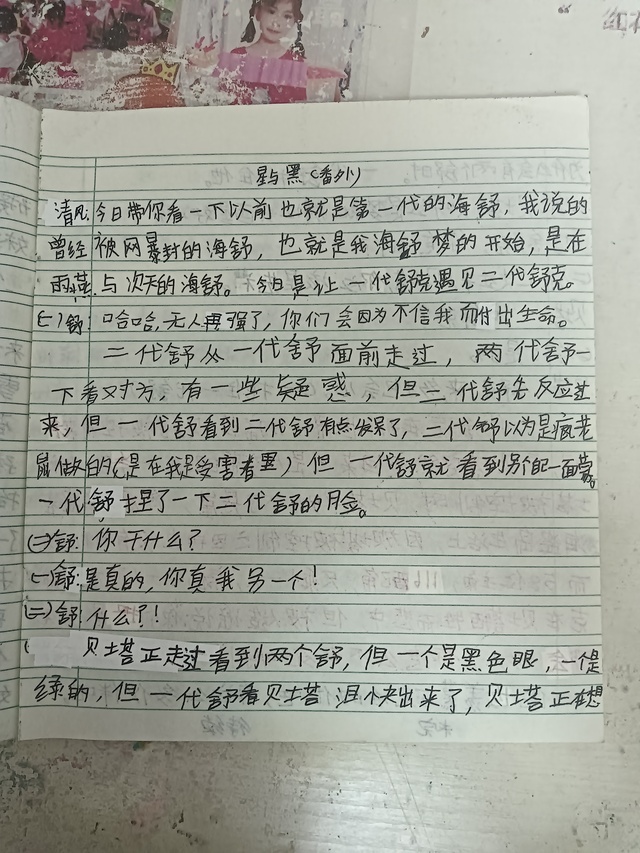 星与黑(番外)
清凡:今日带你看一下以前也就是第一代的海舒,我说的
曾经被网暴封的海舒,也就是我海舒梦的开始,是在
雨燕与次天的海舒。今日是让一代舒克遇见二代舒克。
(二)舒:哈哈,无人再强了,你们会因为不信我而付出生命。
二代舒从一代舒面前走过,两代舒一
下看对方,有一些疑惑,但二代舒先反应过
来,但一代舒看到二代舒有点发呆了,二代舒以为是疯老
鼠做的(是在我是受害者里)但一代舒就看到别的一面蒙。
一代舒捏了一下二代舒的脸。
(二)舒:你干什么?
(一)舒:是真的,你真我另一个!
(二)舒:什么?!
贝塔正走过看到两个舒,但一个是黑色眼,一个是
绿的,但一代舒看贝塔泪快出来了,贝塔正在想